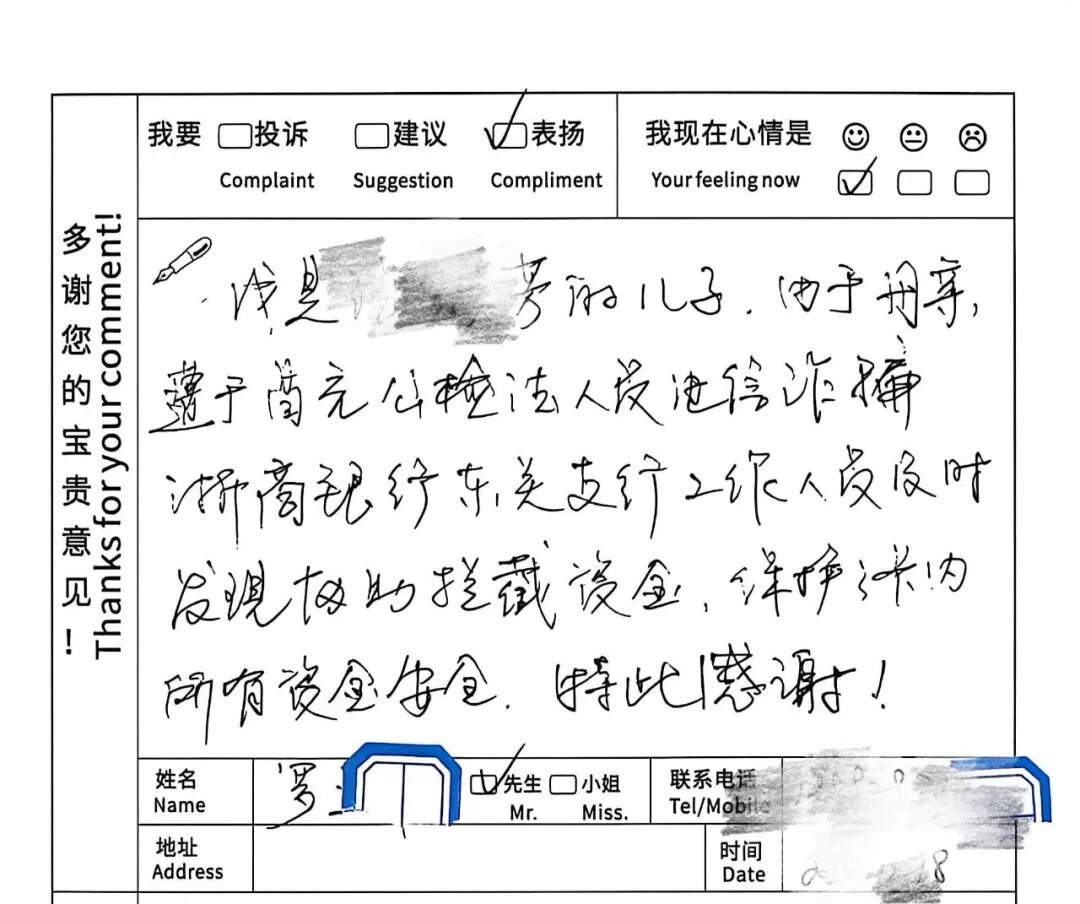 我要 投诉 建议 表扬 我现在心情是
Complaint Suggestion Compliment Your feeling now
多谢您的宝贵意见!
Thanks for your comment!
我是 芳的儿子,由于母亲,
遭于冒充公检法人员电信诈骗
浙商银行东关支行工作人员及时
发现协助拦截资金,保护卡内
所有资金安全,特此感谢!
姓名 罗 先生 小姐 联系电话
Name Mr. Miss. Tel/Mobile
地址 时间
Address Date 8